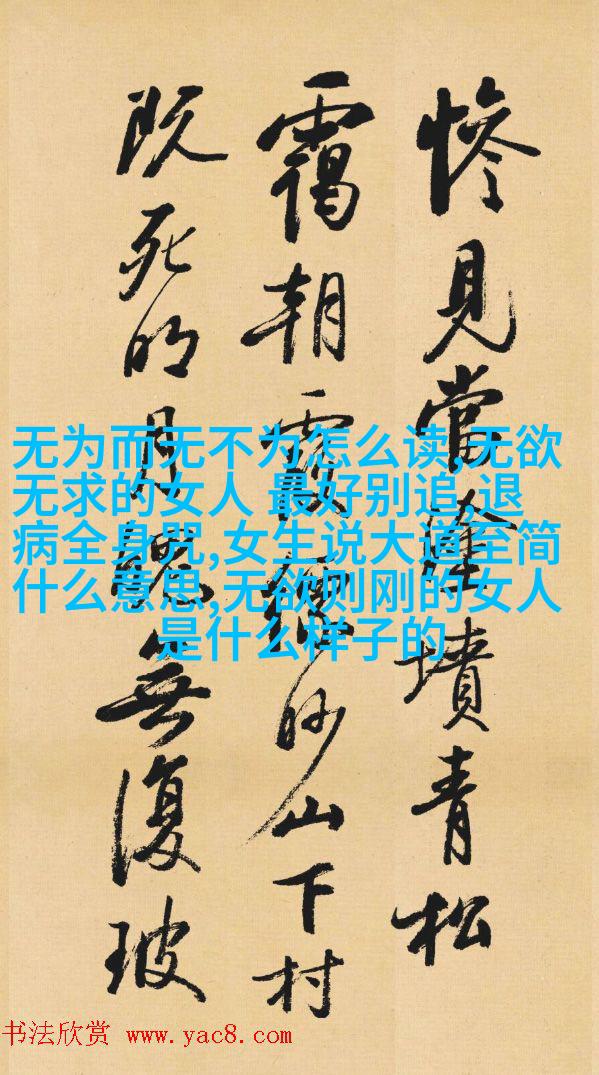 慘見當塗墳青松
靄朝霞縹眇山下村
既死明月魄無復玻
无为而无不为怎么读,无欲
无求的女人 最好别追,退
病全身咒,女生说大道至简
什么意思,无欲则刚的女人
是什么样子的
书法欣赏 www.yac8.com